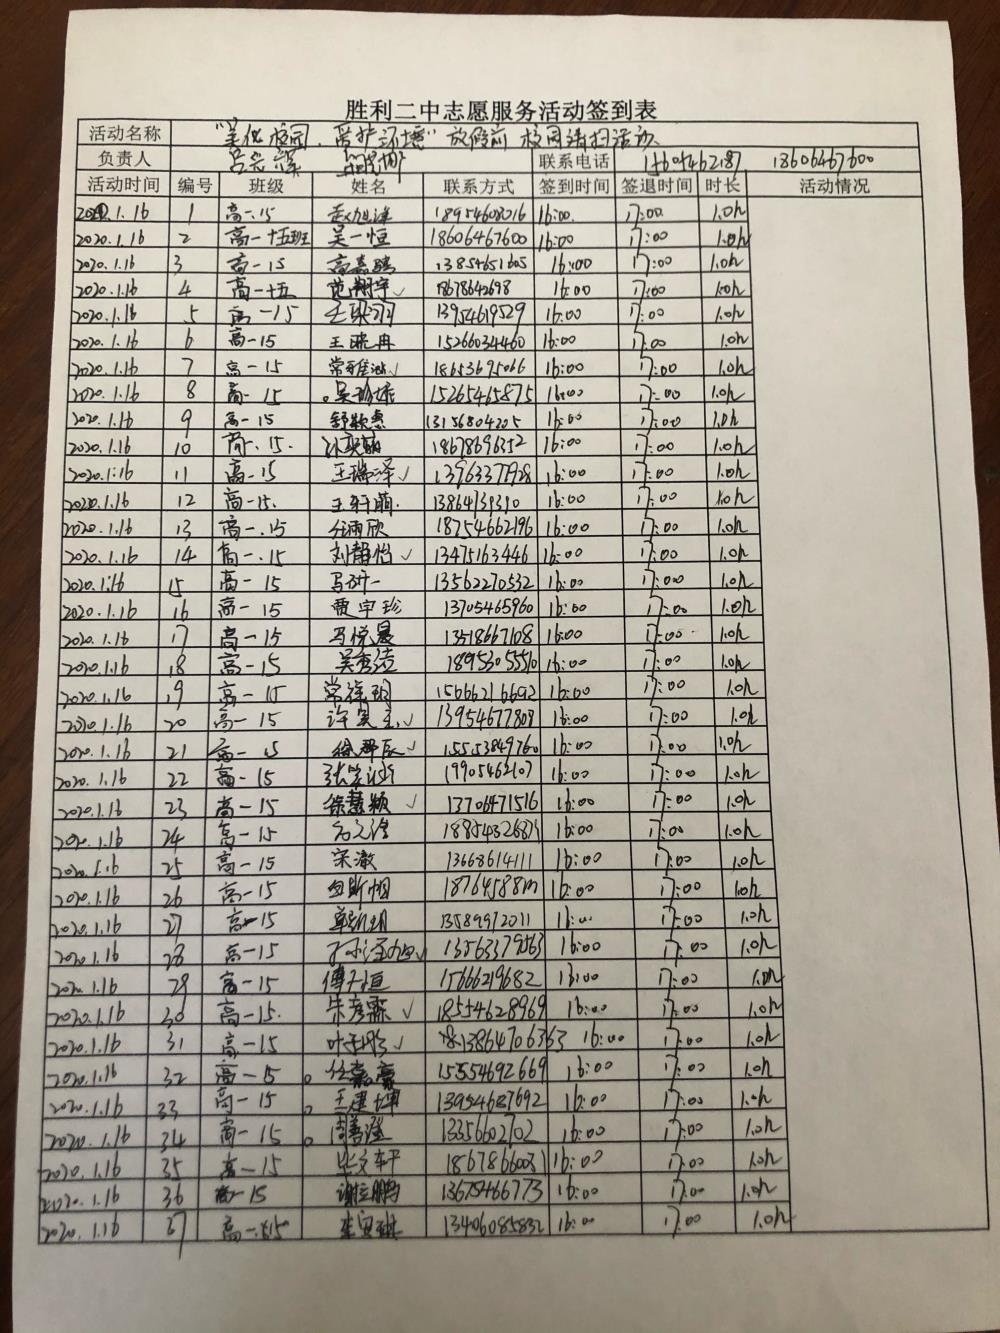 胜利二中志愿服务活动签到表
活动名称 "美化校园,爱护环境"放假前校园清扫活动
负责人 联系电话 15605462187 18606467600
活动时间 编号 班级 姓名 联系方式 签到时间 签退时间 时长 活动情况
2020.1.16 1 高一.15 18954608016 16:00 17:00 1.0h
2020.1.16 2 高一十五班 吴一恒 18606467600 16:00 17:00 1.0h
2020.1.16 3 高一15 高嘉骏 13854651605 16:00 17:00 1.0h
2020.1.16 4 高一十五 范翔宇 18678642698 16:00 17:00 1.0h
2020.1.16 5 高一15 13954619529 16:00 17:00 1.0h
2020.1.16 6 高一15 王晓冉 15266034460 16:00 17:00 1.0h
2020.1.16 7 高一15 18653695066 16:00 17:00 1.0h
2020.1.16 8 高一15 15265465875 16:00 17:00 1.0h
2020.1.16 9 高一15 13156804205 16:00 17:00 1.0h
2020.1.16 10 高一.15. 18678696352 16:00 17:00 1.0h
2020.1.16 11 高一15 王瑞泽 16:00 17:00 1.0h
2020.1.16 12 高一15. 王轩萌. 16:00 17:00 1.0h
2020.1.16 13 高一.15 任雨欣 18754662196 16:00 17:00 1.0h
2020.1.16 14 高一.15 刘静怡 13475163446 16:00 17:00 1.0h
2020.1.16 15 高一15 13562270532 16:00 17:00 1.0h
2020.1.16 16 高一15 贾宇珍 13705465960 16:00 17:00 1.0h
2020.1.16 17 高一15 马悦晨 13518667108 16:00 17:00 1.0h
2020.1.16 18 高一15 吴秀洁 18953055510 16:00 17:00 1.0h
2020.1.16 19 高一15 15666216692 16:00 17:00 1.0h
2020.1.16 20 高一15 13954677808 16:00 17:00 1.0h
2020.1.16 21 高一15 15553849760 16:00 17:00 1.0h
2020.1.16 22 高一15 19905462107 16:00 17:00 1.0h
2020.1.16 23 高一15 徐慧颖 13706471516 16:00 17:00 1.0h
2020.1.16 24 高一15 16:00 17:00 1.0h
2020.1.16 25 高一15 宋澈 13668614111 16:00 17:00 1.0h
2020.1.16 26 高一15 16:00 17:00 1.0h
2020.1.16 27 高一15 13589972011 16:00 17:00 1.0h
2020.1.16 28 高一15 13563379563 16:00 17:00 1.0h
2020.1.16 29 高一15 傅子恒 15666219682 16:00 17:00 1.0h
2020.1.16 30 高一15. 朱彦霖 18554628969 16:00 17:00 1.0h
2020.1.16 31 高一15 13864706363 16:00 17:00 1.0h
2020.1.16 32 高一15 任嘉豪 15554692669 16:00 17:00 1.0h
2020.1.16 33 高一15 王建坤 13954687692 16:00 17:00 1.0h
2020.1.16 34 高一15 周善澄 13356602702 16:00 17:00 1.0h
2020.1.16 35 高一15 毕文轩 18678660031 16:00 17:00 1.0h
2020.1.16 36 高一15 13675466773 16:00 17:00 1.0h
2020.1.16 37 高一.15 13406085832 16:00 17:00 1.0h